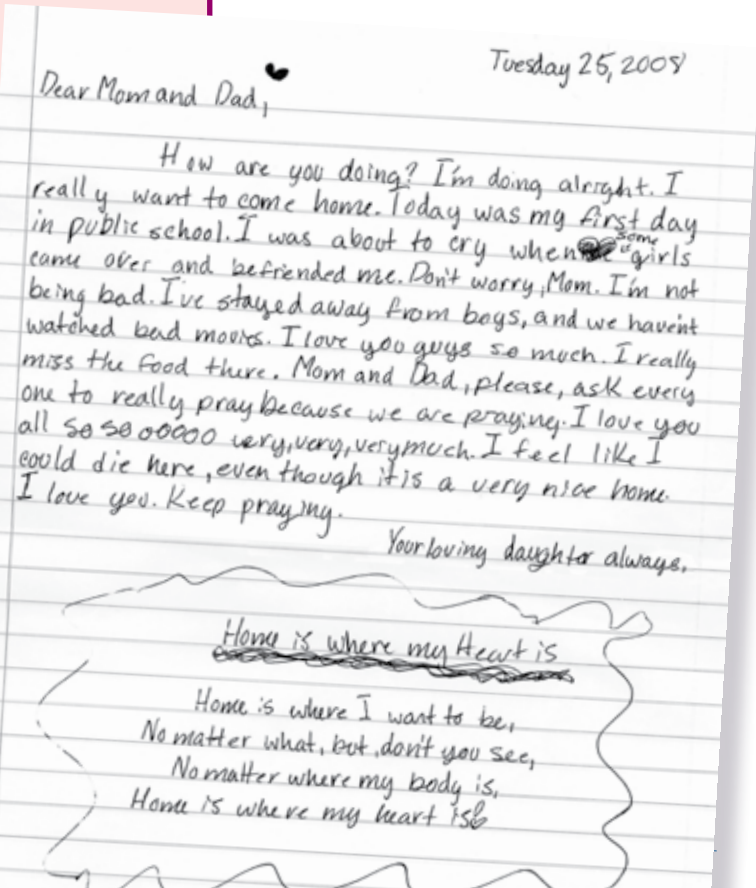 Tuesday 25, 2008
Dear Mom and Dad,
How are you doing? I'm doing alright. I
really want to come home. Today was my first day
in public school. I was about to cry when some girls
came over and befriended me. Don't worry, Mom. I'm not
being bad. I've stayed away from boys, and we haven't
watched bad movies. I love you guys so much. I really
miss the food there. Mom and Dad, please, ask every
one to really pray because we are praying. I love you
all so so ooooo very, very, very much. I feel like I
could die here, even though it is a very nice home.
I love you. Keep praying.
Your loving daughter always,
Home is where my Heart is
Home is where I want to be,
No matter what, but don't you see,
No matter where my body is,
Home is where my heart is